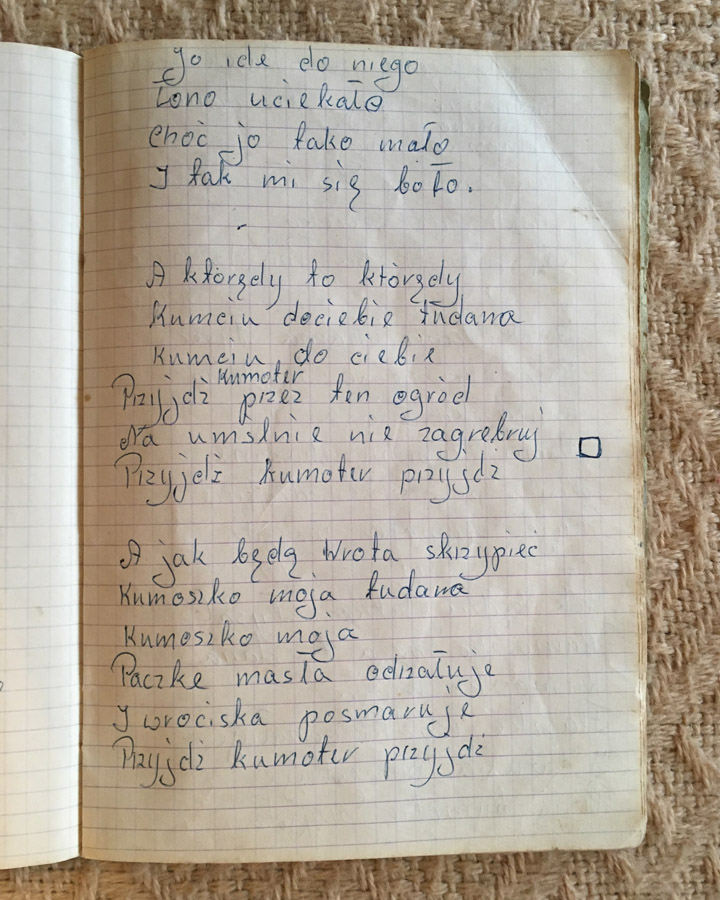 Jo ide do niego
Łono uciekało
Choć jo tako mało
I tak mi się boło.
A którzędy to którzędy
Kumciu dociebie łudana
Kumciu do ciebie
Przyjdź kumoter przez ten ogród
Na umślnie nie zagrebruj
Przyjdź kumoter przyjdź
A jak będą wrota skrzypieć
Kumoszko moja łudana
Kumoszko moja
Paczke masła odrzałuje
I wrociska posmaruje
Przyjdź kumoter przyjdź